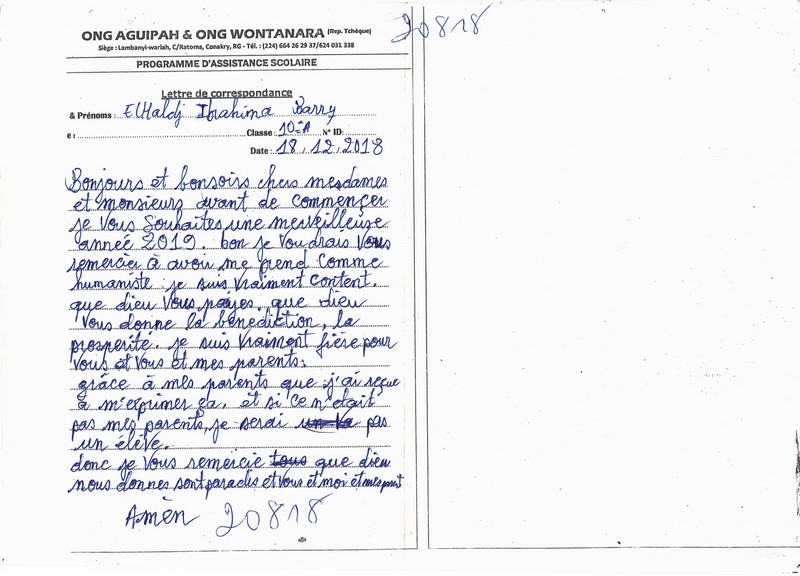 ONG AGUIPAH & ONG WONTANARA (Rep. Tchèque)
Siège : Lambanyi-wariah, C/Ratoma, Conakry, RG - Tél. : (224) 664 26 29 37/624 031 338
PROGRAMME D'ASSISTANCE SCOLAIRE
20818
Lettre de correspondance
& Prénoms : ElHaldj Ibrahima Barry
e : Classe : 10ē A N° ID:
Date : 18.12.2018
Bonjours et bonsoirs chers mesdames
et monsieurs avant de commençer
je vous souhaites une merveilleuse
année 2019. bon je voudrais vous
remercier à avoir me prend comme
humaniste je suis vraiment content.
que dieu vous payes. que dieu
vous donne la bénédiction, la
prosperité. je suis vraiment fière pour
vous et vous et mes parents.
grâce à mes parents que j'ai reçue
à m'exprimer ça. et si ce n'était
pas mes parents, je serai pas
un élève.
donc je vous remercie tous que dieu
nous donnes sont paradis et vous et moi et mes
Amèn 20818